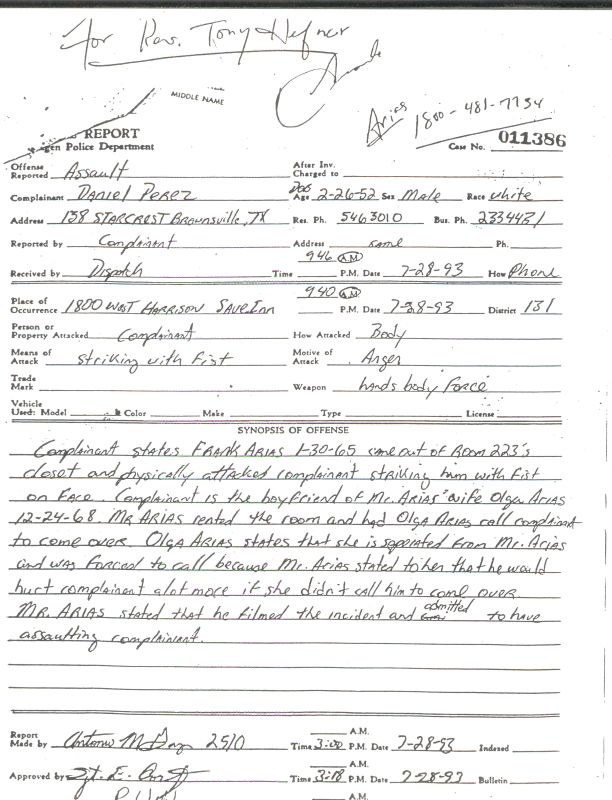 for Rev. Tony Hefner
MIDDLE NAME
Arias 1800-481-7734
REPORT
gen Police Department
Case No. 011386
Offense Reported Assault After Inv. Charged to
Complainant DANIEL PEREZ DOB Age 2-26-52 Sex Male Race White
Address 138 STARCREST BROWNSVILLE, TX Res. Ph. 5463010 Bus. Ph. 2334421
Reported by Complainant Address same Ph.
Received by Dispatch Time 946 A.M. P.M. Date 7-28-93 How Phone
Place of Occurrence 1800 WEST HARRISON SAVE INN 940 A.M. P.M. Date 7-28-93 District 131
Person or Property Attacked Complainant How Attacked Body
Means of Attack striking with Fist Motive of Attack Anger
Trade Mark Weapon hands body Force
Vehicle Used: Model Color Make Type License
SYNOPSIS OF OFFENSE
Complainant states FRANK ARIAS 1-30-65 came out of Room 223's
closet and physically attacked complainant striking him with fist
on Face. Complainant is the boyfriend of Mr. ARIAS' wife Olga ARIAS
12-24-68. MR ARIAS rented the room and had OLGA ARIAS call complainant
to come over. OLGA ARIAS states that she is seperated from Mr. Arias
and was forced to call because Mr. Arias stated to her that he would
hurt complainant alot more if she didn't call him to come over.
MR. ARIAS stated that he filmed the incident and admitted to have
assaulting complainant.
Report Made by Antonio 2510 Time 3:00 A.M. P.M. Date 7-28-93 Indexed
Approved by Sgt. E. Time 3:18 A.M. P.M. Date 7-28-93 Bulletin
A.M.